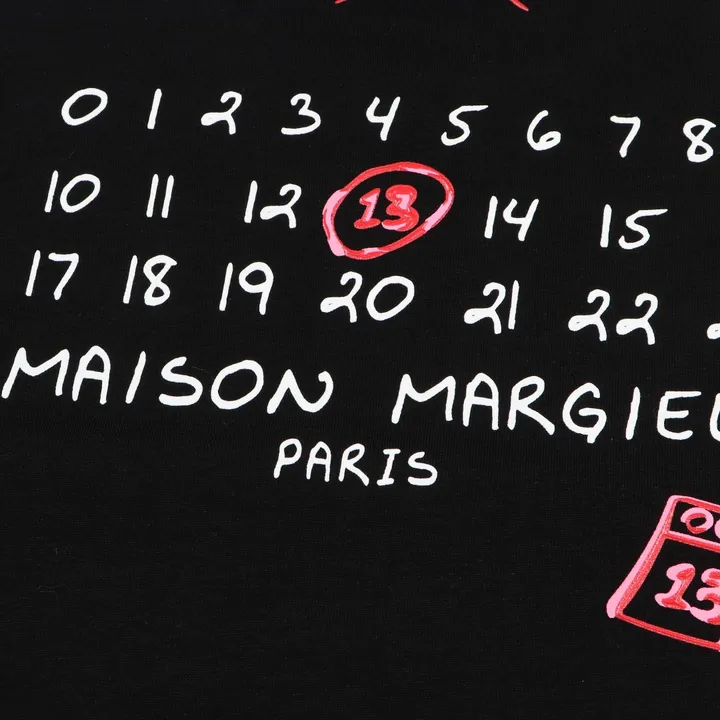 0 1 2 3 4 5 6 7 8
10 11 12 13 14 15
17 18 19 20 21 22
MAISON MARGIE
PARIS
13